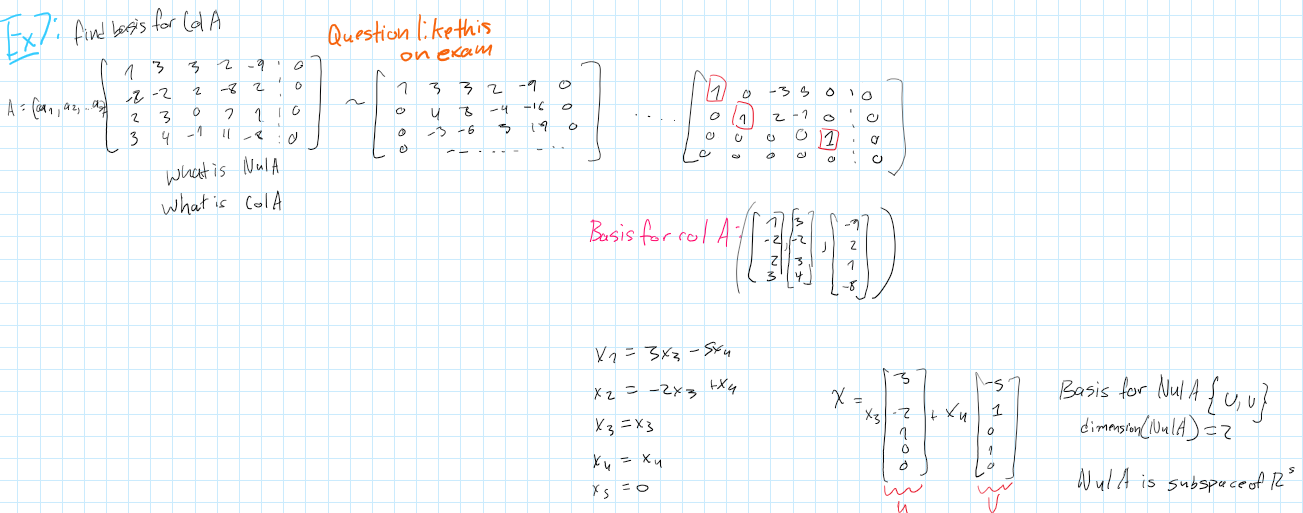 Ex7: find basis for Col A
Question like this
on exam
A = (a1, a2, .. a5)
[ 1 3 3 2 -9 : 0
-2 -2 2 -8 2 : 0
2 3 0 7 1 : 0
3 4 -1 11 -8 : 0 ]
~
[ 1 3 3 2 -9 0
0 4 8 -4 -16 0
0 -3 -6 3 19 0
0 -- ..... ]
.....
[ 1 0 -3 5 0 : 0
0 1 2 -1 0 : 0
0 0 0 0 1 : 0
0 0 0 0 0 : 0 ]
what is Nul A
what is Col A
Basis for col A: ( [ 1 -2 2 3 ], [ 3 -2 3 4 ], [ -9 2 1 -8 ] )
x1 = 3x3 - 5x4
x2 = -2x3 + x4
x3 = x3
x4 = x4
x5 = 0
x = x3 [ 3 -2 1 0 0 ] + x4 [ -5 1 0 1 0 ]
u v
Basis for Nul A {u, v}
dimension(Nul A) = 2
Nul A is subspace of R^5